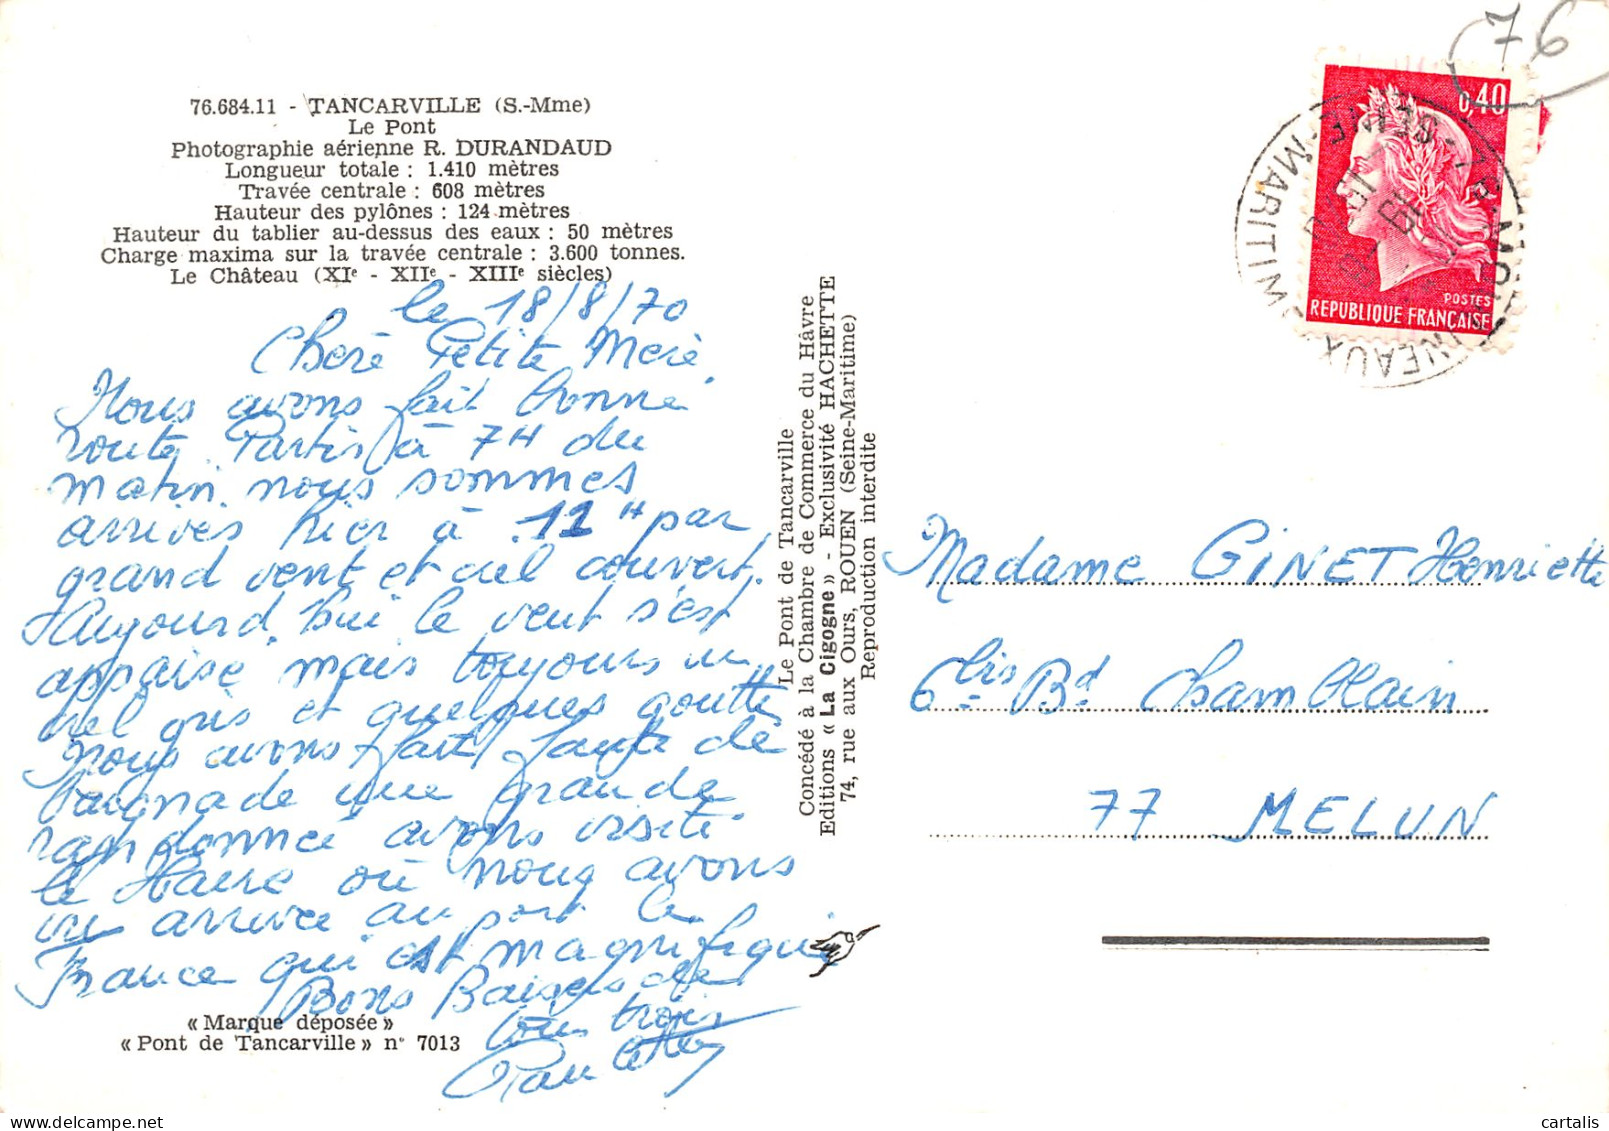 76.684.11 - TANCARVILLE (S.-Mme)
Le Pont
Photographie aérienne R. DURANDAUD
Longueur totale : 1.410 mètres
Travée centrale : 608 mètres
Hauteur des pylônes : 124 mètres
Hauteur du tablier au-dessus des eaux : 50 mètres
Charge maxima sur la travée centrale : 3.600 tonnes.
Le Château (XIe - XIIe - XIIIe siècles)
le 18/8/70
Cheré Petite Meré
Nous avons fait bonne
route Partis à 7H du
matin nous sommes
arrivés hier à 11H par
grand vent et ciel couvert.
Aujourd'hui le vent s'est
appaisé mais toujours un
ciel gris et quelques gouttes
Nous avons fait faute de
baignade une grande
randonneé avons visité
le Havre où nous avons
vu arriver au port le
France qui est magnifique
Bons Baisers de
tous trois
Paulette
« Marque déposée »
« Pont de Tancarville » n° 7013
Le Pont de Tancarville
Concédé à la Chambre de Commerce du Hâvre
Editions « La Cigogne » - Exclusivité HACHETTE
74, rue aux Ours, ROUEN (Seine-Maritime)
Reproduction interdite
76
0,40
POSTES
REPUBLIQUE FRANÇAISE
SEINE MARITIME
Madame GINET Henriette
6 bis Bd Chamblain
77 MELUN
cartalis